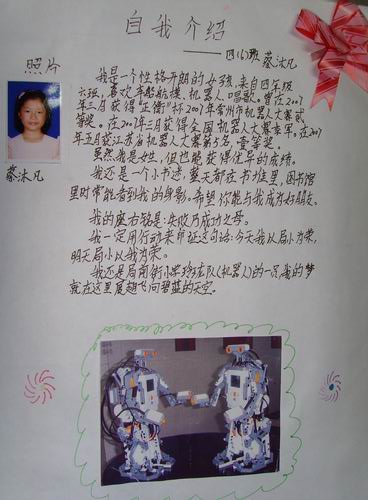 自我介绍
——四(6)班 蔡沐凡
照片
蔡沐凡
我是一个性格开朗的女孩,来自四年级
六班,喜欢车船航模,机器人,唱歌。曾在2007
年三月获得“正衡”杯2007年常州市机器人大赛贰
等奖。在2007年3月获得全国机器人大赛季军。在2007
年五月获江苏省机器人大赛第5名,壹等奖。
虽然我是女生,但也能获得优异的成绩。
我还是一个小书迷,整天都在书堆里,图书馆
里时常能看到我的身影。希望你能与我成为好朋友。
我的座右铭是:失败乃成功之母。
我一定用行动来印证这句话:今天我以局小为荣,
明天局小以我为荣。
就在这里展翅飞向碧蓝的天空。